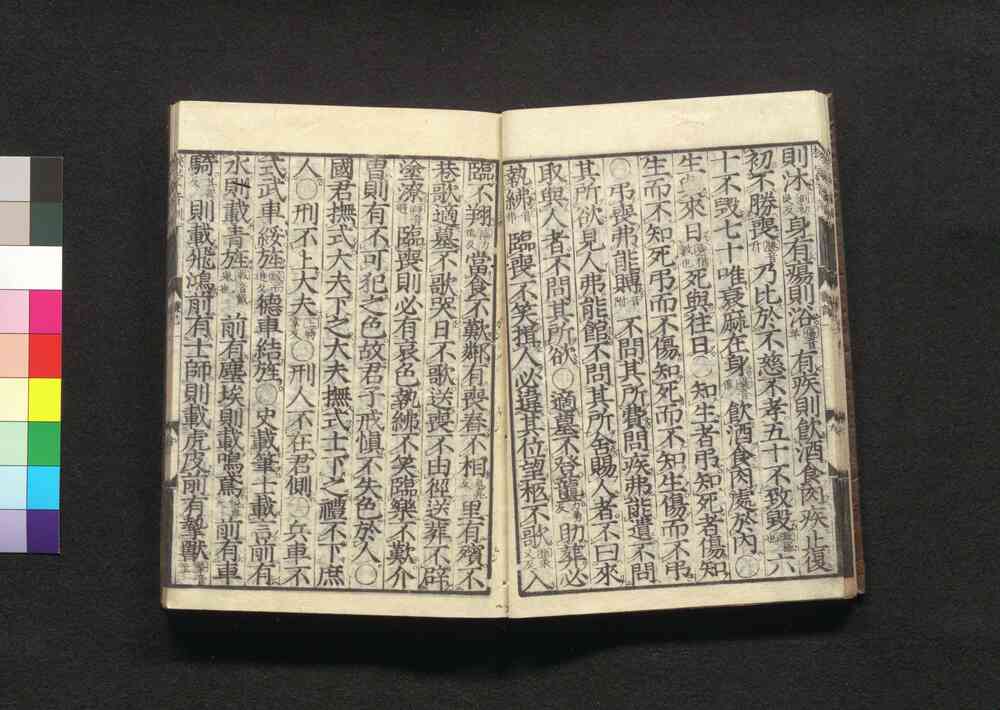 則沐身有瘍則浴有疾則飲酒食肉疾止復
初不勝喪乃比於不慈不孝五十不致毀六
十不毀七十唯衰麻在身飲酒食肉處於內
生與來日死與往日知生者弔知死者傷知
生而不知死弔而不傷知死而不知生傷而不弔
弔喪弗能賻不問其所費問疾弗能遺不問
其所欲見人弗能館不問其所舍賜人者不曰來
取與人者不問其所欲適墓不登壟助葬必
執紼臨喪不笑揖人必違其位望柩不歌入
臨不翔當食不歎鄰有喪舂不相里有殯不
巷歌適墓不歌哭日不歌送喪不由徑送葬不辟
塗潦臨喪則必有哀色執紼不笑臨樂不歎介
胄則有不可犯之色故君子戒慎不失色於人
國君撫式大夫下之大夫撫式士下之禮不下庶
人刑不上大夫刑人不在君側兵車不
式武車綏旌德車結旌史載筆士載言前有
水則載青旌前有塵埃則載鳴鳶前有車
騎則載飛鴻前有士師則載虎皮前有摯獸